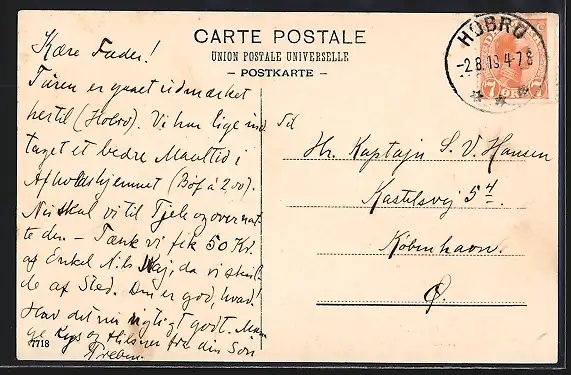 CARTE POSTALE
UNION POSTALE UNIVERSELLE
– POSTKARTE –
HOBRO
-2.8.18 4-7 E
7 ØRE 7
Kære Fader!
Turen er gaaet udmærket
hertil (Hobro). Vi har lige ind
taget et bedre Maaltid i
Afholdshjemmet (Bøf à 2,00).
Nu skal vi til Tjele og overnat
te der – Tænk vi fik 50 Kr.
af Onkel Nils Kaj, da vi skul
de af Sted. Den er god, hvad!
Hav det nu rigtigt godt. Man
ge Kys og Hilsner fra din Søn
Preben.
7718
Til
Hr. Kaptajn S. V. Hansen
Kastelsvej 5⁴
København.
Ø.